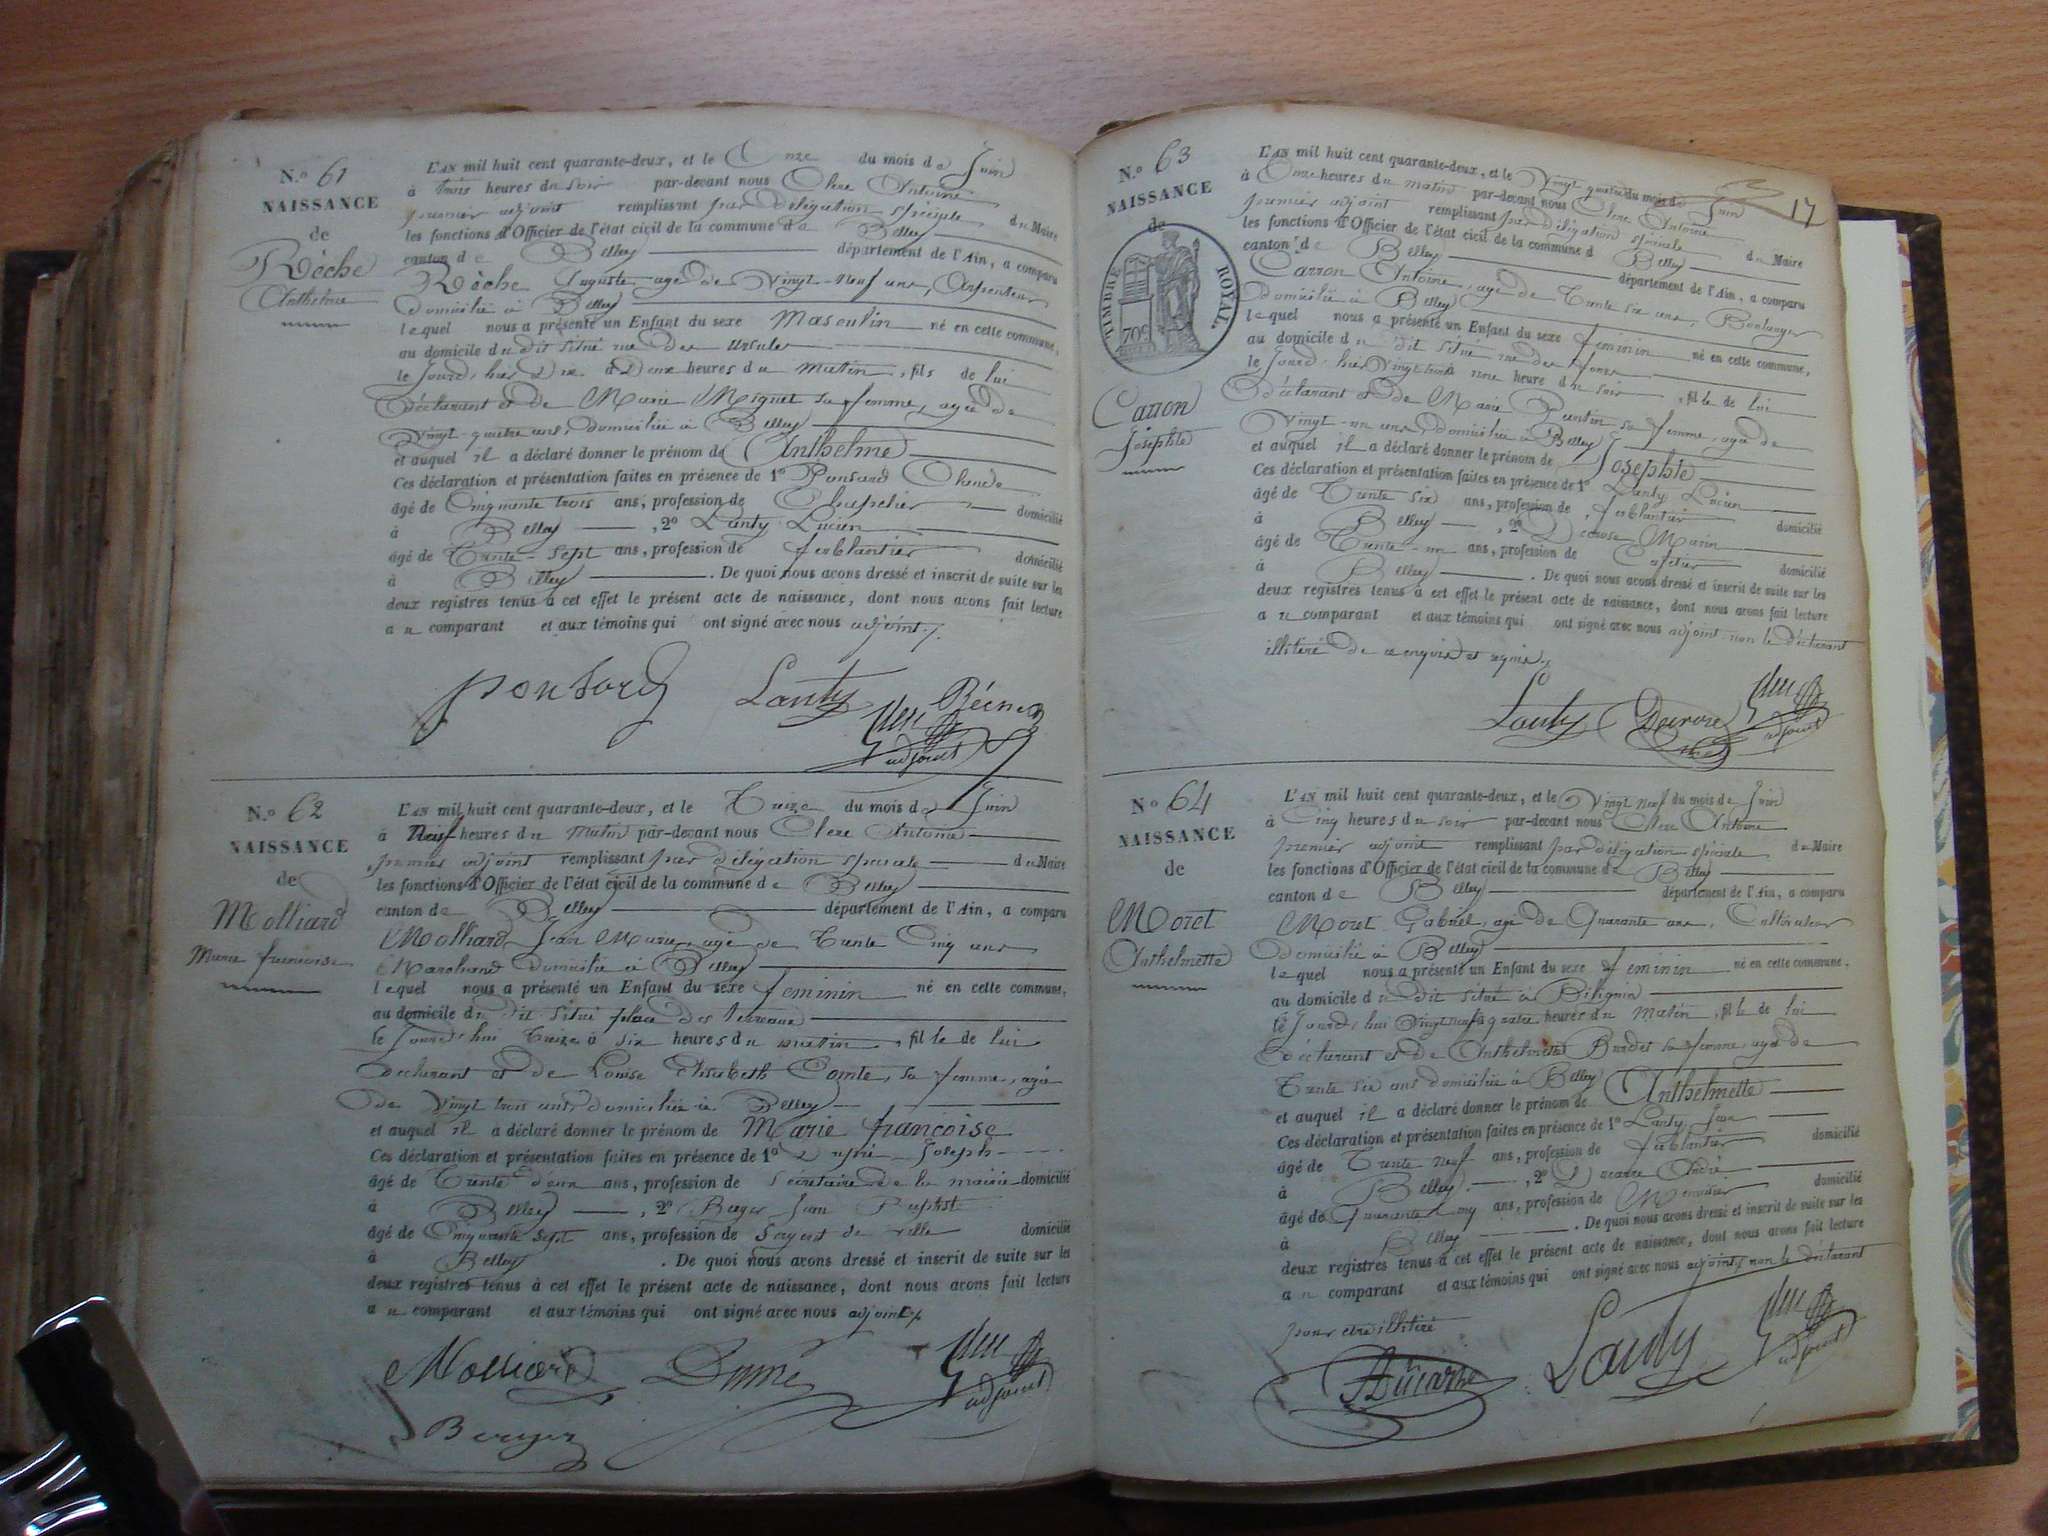 N.º 61
NAISSANCE
de
Rèche
Anthelme
L'AN mil huit cent quarante-deux, et le Onze du mois de Juin
à trois heures du soir par-devant nous Clerc Antoine
premier adjoint remplissant par délégation spéciale du Maire
les fonctions d'Officier de l'état civil de la commune de Belley
canton de Belley département de l'Ain, a comparu
Rèche Auguste agé de vingt-neuf ans,
domicilié à Belley
lequel nous a présenté un Enfant du sexe Masculin né en cette commune,
au domicile du dit situé rue des
le jourd'hui à Deux heures du matin, fils de lui
Déclarant et de Marie Miguet sa femme, agée de
vingt-quatre ans, domiciliée à Belley
et auquel il a déclaré donner le prénom de Anthelme
Ces déclaration et présentation faites en présence de 1º Ponsard Claude
âgé de Cinquante trois ans, profession de Chapelier domicilié
à Belley, 2º Lanty Lucien
âgé de Trente-sept ans, profession de ferblantier domicilié
à Belley. De quoi nous avons dressé et inscrit de suite sur les
deux registres tenus à cet effet le présent acte de naissance, dont nous avons fait lecture
au comparant et aux témoins qui ont signé avec nous adjoint./.
ponsard Lanty Clerc
adjoint
N.º 62
NAISSANCE
de
Molliard
Marie françoise
L'AN mil huit cent quarante-deux, et le Treize du mois de Juin
à Neuf heures du matin par-devant nous Clerc Antoine
premier adjoint remplissant par délégation spéciale du Maire
les fonctions d'Officier de l'état civil de la commune de Belley
canton de Belley département de l'Ain, a comparu
Molliard Jean Marie, agé de Trente Cinq ans
Marchand domicilié à Belley
lequel nous a présenté un Enfant du sexe feminin né en cette commune,
au domicile du dit situé place des terreaux
le jourd'hui Treize à six heures du matin, fille de lui
Déclarant et de Louise Elisabeth Comte, sa femme, agée
de vingt trois ans domiciliée à Belley
et auquel il a déclaré donner le prénom de Marie françoise
Ces déclaration et présentation faites en présence de 1º Joseph
âgé de Trente deux ans, profession de Sécrétaire de la mairie domicilié
à Belley, 2º Berger Jean Baptiste
âgé de Cinquante sept ans, profession de Sergent de ville domicilié
à Belley. De quoi nous avons dressé et inscrit de suite sur les
deux registres tenus à cet effet le présent acte de naissance, dont nous avons fait lecture
au comparant et aux témoins qui ont signé avec nous adjoint./.
Molliard Clerc
adjoint
Berger
17
N.º 63
NAISSANCE
de
TIMBRE ROYAL.
70c
Carron
Josephte
L'AN mil huit cent quarante-deux, et le Vingt quatre du mois de Juin
à Onze heures du matin par-devant nous Clerc Antoine
premier adjoint remplissant par délégation spéciale du Maire
les fonctions d'Officier de l'état civil de la commune d Belley
canton de Belley département de l'Ain, a comparu
Carron Antoine, agé de Trente six ans, Boulanger
domicilié à Belley
lequel nous a présenté un Enfant du sexe feminin né en cette commune,
au domicile du dit situé rue des
le jourd'hier vingt trois à une heure du soir, fille de lui
déclarant et de Marie sa femme, agée de
Vingt-un ans domiciliée à Belley
et auquel il a déclaré donner le prénom de Josephte
Ces déclaration et présentation faites en présence de 1º Lanty Lucien
âgé de Trente six ans, profession de ferblantier domicilié
à Belley, 2º Marin
âgé de Trente-un ans, profession de Cafetier domicilié
à Belley. De quoi nous avons dressé et inscrit de suite sur les
deux registres tenus à cet effet le présent acte de naissance, dont nous avons fait lecture
au comparant et aux témoins qui ont signé avec nous adjoint non le déclarant
illitéré de ce enquis et requis./.
Lanty Clerc
adjoint
Nº 64
NAISSANCE
de
Moret
Anthelmette
L'AN mil huit cent quarante-deux, et le Vingt neuf du mois de Juin
à Cinq heures du soir par-devant nous Clerc Antoine
premier adjoint remplissant par délégation spéciale du Maire
les fonctions d'Officier de l'état civil de la commune de Belley
canton de Belley département de l'Ain, a comparu
Moret Gabriel, agé de Quarante ans, Cultivateur
domicilié à Belley
lequel nous a présenté un Enfant du sexe feminin né en cette commune.
au domicile du dit situé à Bilignin
le jourd'hui vingt neuf à quatre heures du matin, fille de lui
Déclarant et de Anthelmette Burdet sa femme, agée de
Trente six ans domiciliée à Belley
et auquel il a déclaré donner le prénom de Anthelmette
Ces déclaration et présentation faites en présence de 1º Lanty Jean
âgé de Trente neuf ans, profession de ferblantier domicilié
à Belley, 2º Ducarre André
âgé de Quarante cinq ans, profession de Menuisier domicilié
à Belley. De quoi nous avons dressé et inscrit de suite sur les
deux registres tenus à cet effet le présent acte de naissance, dont nous avons fait lecture
au comparant et aux témoins qui ont signé avec nous adjoint, non le déclarant
pour etre illitéré
ADucarre Lanty Clerc
adjoint